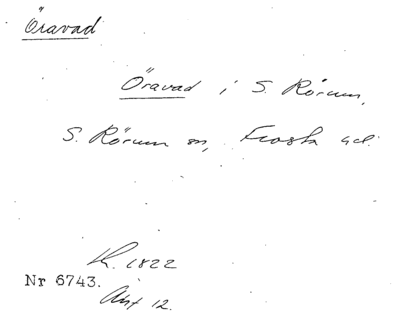 Öravad
Öravad i S. Rörum,
S. Rörum sn, Frosta hd.
K. 1822
Nr 6743.
Akt 12.